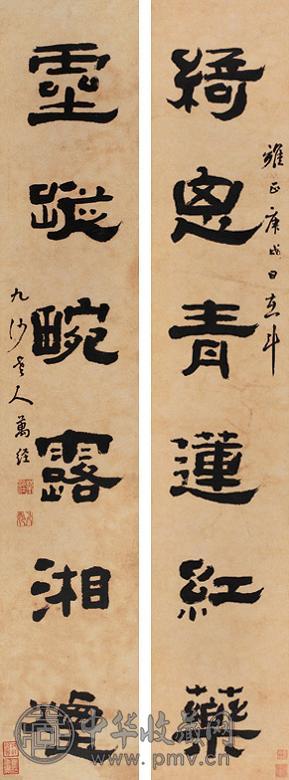 雍正庚戌日在斗
綺思青蓮紅藥
靈蹤畹露湘
九沙老人萬經
中华收藏网
www.pmv.cn